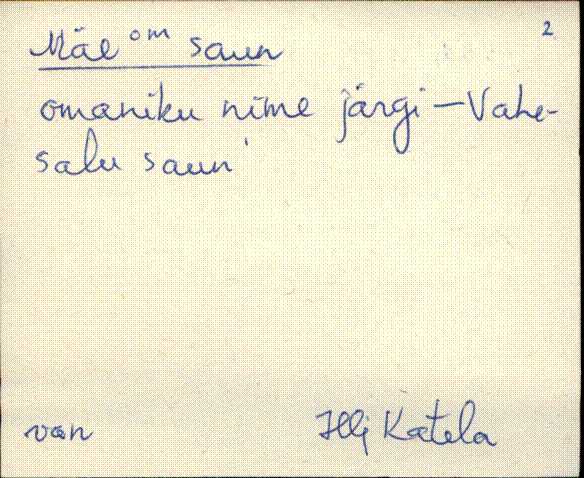 2
Mäe om saun
omaniku nime järgi – Vahe-
salu saun'
van Illj Katela